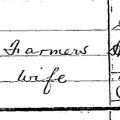 Farmers
wife